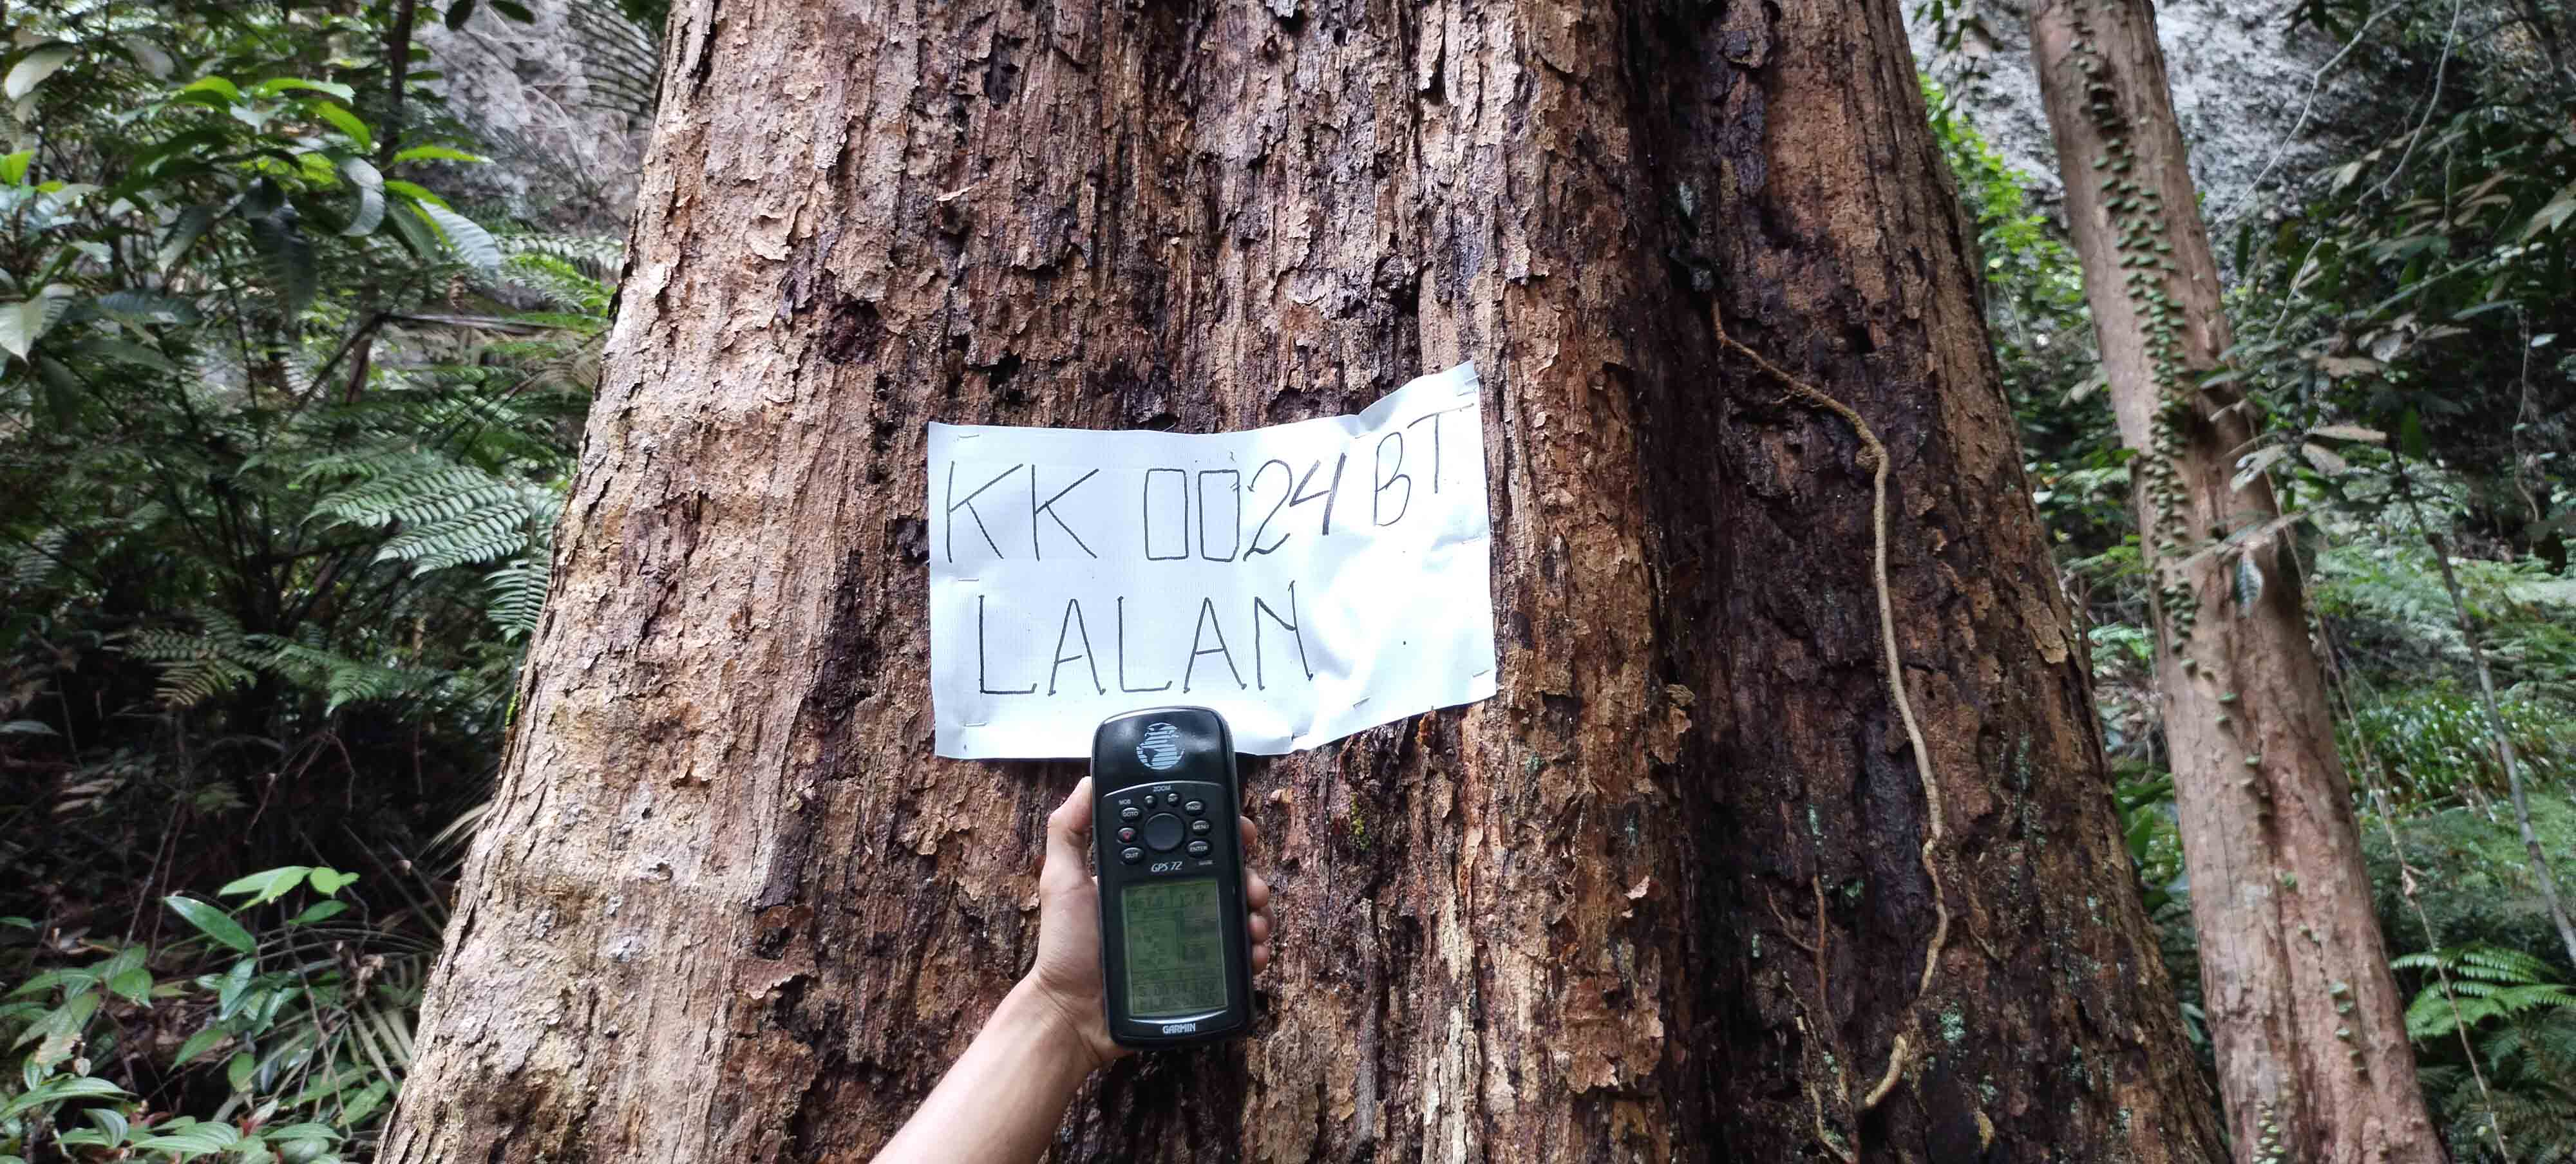 KK 0024 BT
LALAN
ZOOM
MOB
GOTO
PAGE
MENU
QUIT
ENTER
GPS 72
GARMIN